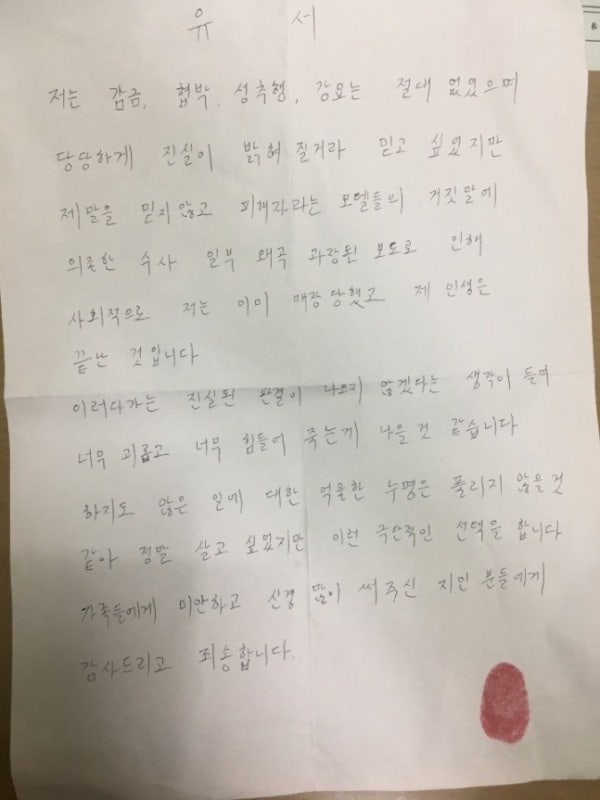 유 서
저는 감금, 협박, 성추행, 강요는 절대 없었으며
당당하게 진실이 밝혀 질거라 믿고 싶었지만
제 말을 믿지 않고 피해자라는 모델들의 거짓말에
의존한 수사 일부 왜곡 과장된 보도로 인해
사회적으로 저는 이미 매장 당했고 제 인생은
끝난 것입니다
이러다가는 진실된 판결이 나오지 않겠다는 생각이 들며
너무 괴롭고 너무 힘들어 죽는게 나을 것 같습니다
하지도 않은 일에 대한 억울한 누명은 풀리지 않을 것
같아 정말 살고 싶었지만 이런 극단적인 선택을 합니다
가족들에게 미안하고 신경 많이 써주신 지인 분들에게
감사드리고 죄송합니다.
&